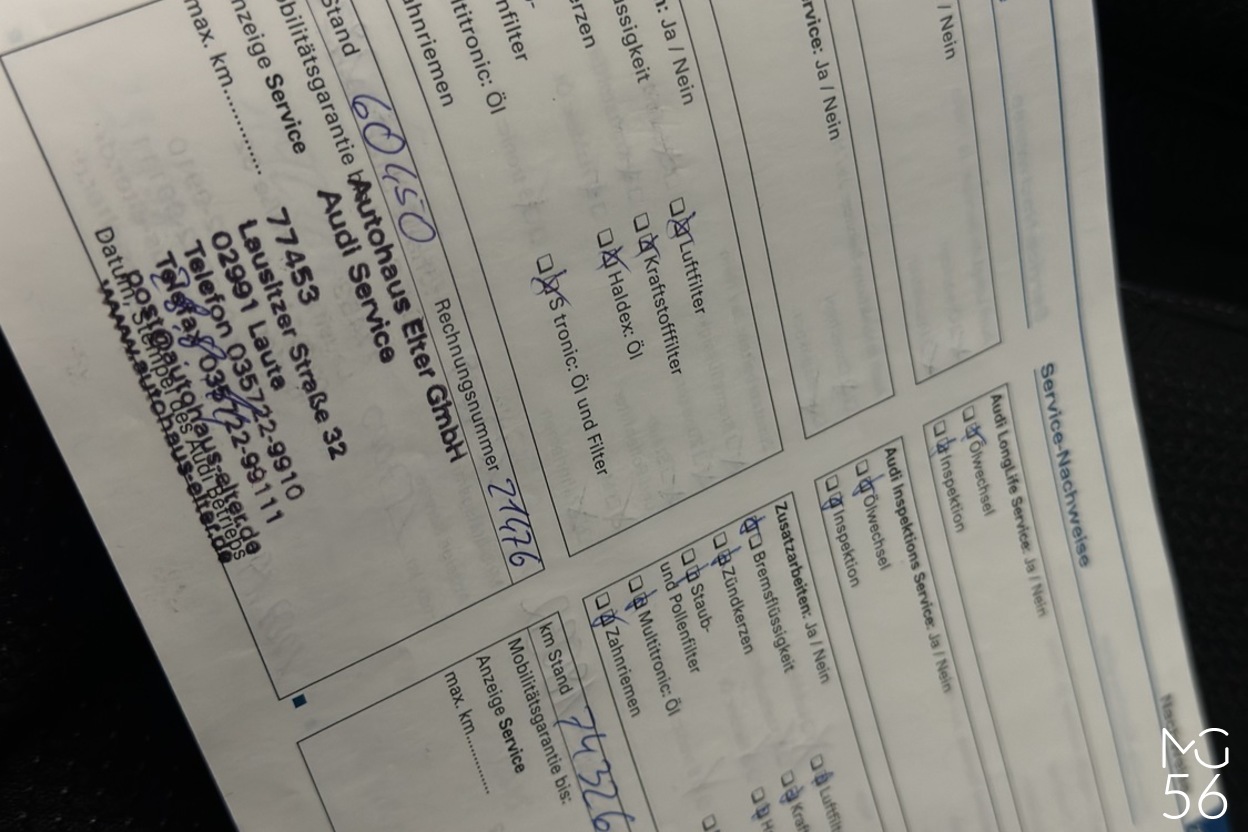 Service-Nachweise
/ Nein
rvice: Ja / Nein
n: Ja / Nein
ssigkeit
erzen
nfilter
ltitronic: Öl
ahnriemen
Luftfilter
Kraftstofffilter
Haldex: Öl
S tronic: Öl und Filter
Stand 60450
Rechnungsnummer 21476
obilitätsgarantie b
nzeige Service
max. km
Autohaus Elter GmbH
Audi Service
77453
Lausitzer Straße 32
02991 Lauta
Telefon 035722-9910
Telefax 035722-99111
post@autohaus-elter.de
www.autohaus-elter.de
Datum, Stempel des Audi Betriebs
Audi LongLife Service: Ja / Nein
Ölwechsel
Inspektion
Audi Inspektions Service: Ja / Nein
Ölwechsel
Inspektion
Zusatzarbeiten: Ja / Nein
Bremsflüssigkeit
Zündkerzen
Staub-
und Pollenfilter
Multitronic: Öl
Zahnriemen
Luftfilt
Kraf
H
km Stand 74326
Mobilitätsgarantie bis:
Anzeige Service
max. km
MG
56